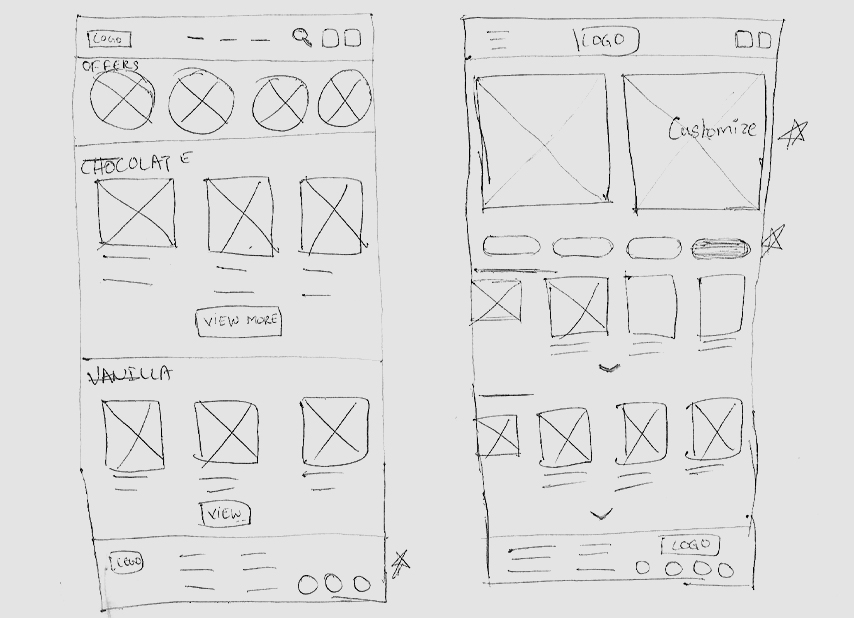 LOGO
OFFERS
CHOCOLATE
VIEW MORE
VANILLA
VIEW
LOGO
LOGO
Customize
LOGO